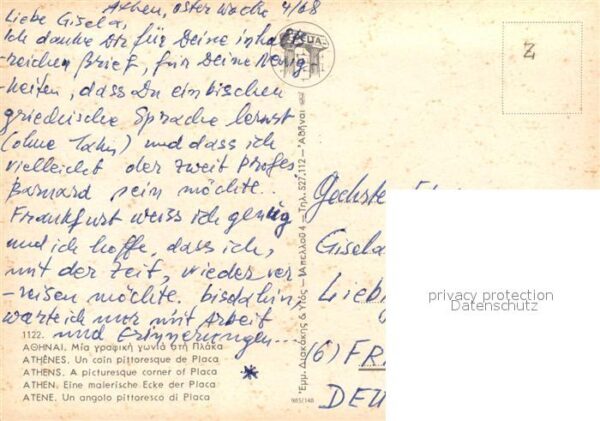 Athen, Oster Woche 4/68
Liebe Gisela,
Ich danke Dir für Deine inhalt
reichen Brief, für Deine Neuig-
keiten, dass Du ein bischen
griechische Sprache lernst
(ohne Zahn) und dass ich
vielleicht der zweit Profes.
Barnard sein möchte..
Frankfurt weiss ich genug
und ich hoffe, dass ich,
mit der Zeit, wieder ver
-reisen möchte. bisdahin,
warte ich nur mit Arbeit
und Erinnerungen...
1122.
ΑΘΗΝΑΙ. Μία γραφική γωνιά στη Πλάκα
ATHÈNES. Un coin pittoresque de Placa
ATHENS. A picturesque corner of Placa
ATHEN. Eine malerische Ecke der Placa
ATENE. Un angolo pittoresco di Placa
Ἐμμ. Διακάκης & Υἱός - Ἀπελλοῦ 4 - Τηλ. 527.112 - Ἀθῆναι
985/148
Z
Gisela
Lieb
(6) FR
DEU
privacy protection
Datenschutz